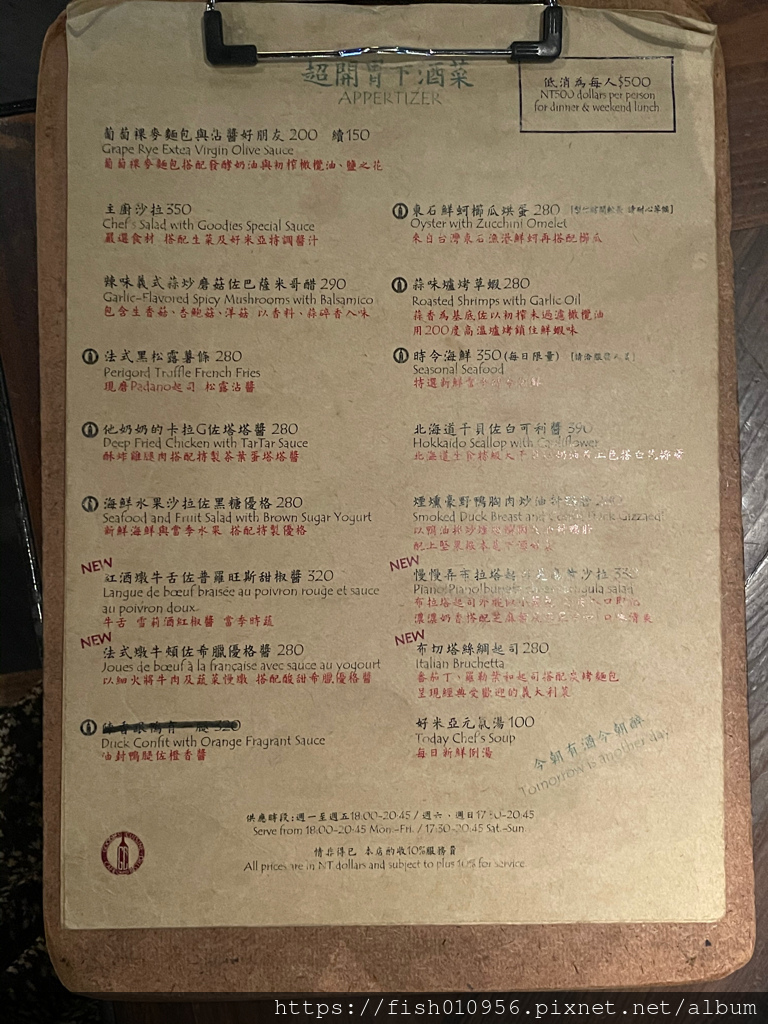 超開胃下酒菜
APPERTIZER
低消為每人$500
NT500 dollars per person
for dinner & weekend lunch
葡萄裸麥麵包與沾醬好朋友 200 續150
Grape Rye Extea Virgin Olive Sauce
葡萄裸麥麵包搭配發酵奶油與初榨橄欖油、鹽之花
主廚沙拉 350
Chef's Salad with Goodies Special Sauce
嚴選食材 搭配生菜及好米亞特調醬汁
辣味義式蒜炒磨菇佐巴薩米哥醋 290
Garlic-Flavored Spicy Mushrooms with Balsamico
包含生香菇、杏鮑菇、洋菇 以香料、蒜碎香入味
法式黑松露薯條 280
Perigord Truffle French Fries
現磨Padano起司 松露沾醬
他奶奶的卡拉G佐塔塔醬 280
Deep Fried Chicken with TarTar Sauce
酥炸雞腿肉搭配特製茶葉蛋塔塔醬
海鮮水果沙拉佐黑糖優格 280
Seafood and Fruit Salad with Brown Sugar Yogurt
新鮮海鮮與當季水果 搭配特製優格
NEW
紅酒燉牛舌佐普羅旺斯甜椒醬 320
Langue de bœuf braisée au poivron rouge et sauce
au poivron doux
牛舌 雪莉酒紅椒醬 當季時蔬
NEW
法式燉牛頰佐希臘優格醬 280
Joues de bœuf à la française avec sauce au yogourt
以細火將牛肉及蔬菜慢燉 搭配酸甜希臘優格醬
320
Duck Confit with Orange Fragrant Sauce
油封鴨腿佐橙香醬
東石鮮蚵櫛瓜烘蛋 280
Oyster with Zucchini Omelet
來自台灣東石漁港鮮蚵再搭配櫛瓜
蒜味爐烤草蝦 280
Roasted Shrimps with Garlic Oil
蒜香為基底佐以初榨未過濾橄欖油
用200度高溫爐烤鎖住鮮蝦味
時令海鮮 350 (每日限量) [請洽服務人員]
Seasonal Seafood
特選新鮮
北海道干貝佐白可利醬 390
Hokkaido Scallop with Cauliflower
北海道生食特級大干
煙燻豪野鴨胸肉炒油
Smoked Duck Breast and Duck Gizzard
以鴨油拌炒
配上堅果
NEW
慢慢弄布拉塔起 沙拉
Piano! Piano! salad
布拉塔起司
濃濃奶香搭配芝麻
NEW
布切塔絲綢起司 280
Italian Bruchetta
番茄丁、羅勒葉和起司搭配炭烤麵包
呈現經典受歡迎的義大利菜
好米亞元氣湯 100
Today Chef's Soup
每日新鮮例湯
今朝有酒今朝醉
Tomorrow is another day
供應時段:週一至週五18:00-20:45 / 週六、週日17:30-20:45
Serve from 18:00-20:45 Mon.-Fri. / 17:30-20:45 Sat.-Sun
情非得已 本店酌收10%服務費
All prices are in NT dollars and subject to plus 10% for service.
https://fish010956.pixnet.net/album